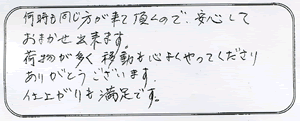 何時も同じ方が来て頂くので、安心して
おまかせ出来ます。
荷物が多く移動も心よくやってくださり
ありがとうございます。
仕上がりも満足です。